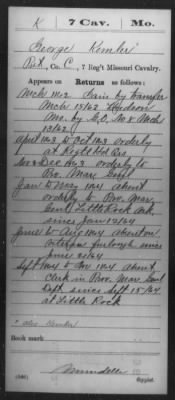 K | 7 Cav. | Mo.
George Kemler
Pvt., Co. C, 7 Reg't Missouri Cavalry.
Appears on
Returns as follows:
Mch 1862 Gain by transfer
Mch 15/62 Hudson
Mo. by G.O. No 8 Mch
13/62
April 1863 to Oct 1863 orderly
at Regt Hd Qrs
Nov & Dec 1863 orderly to
Pro. Mar. Genl
Jan to May 1864 absent
orderly to Pro. Mar.
Genl Little Rock Ark.
since Jan 1864
June to Aug 1864 absent on
furlough since
June 20/64
Sept 1864 to 1864 absent
Clerk in Pro. Mar. Genl
Dept. since Sept 15/64
at Little Rock
* also
Book mark
(546)
Copyist.